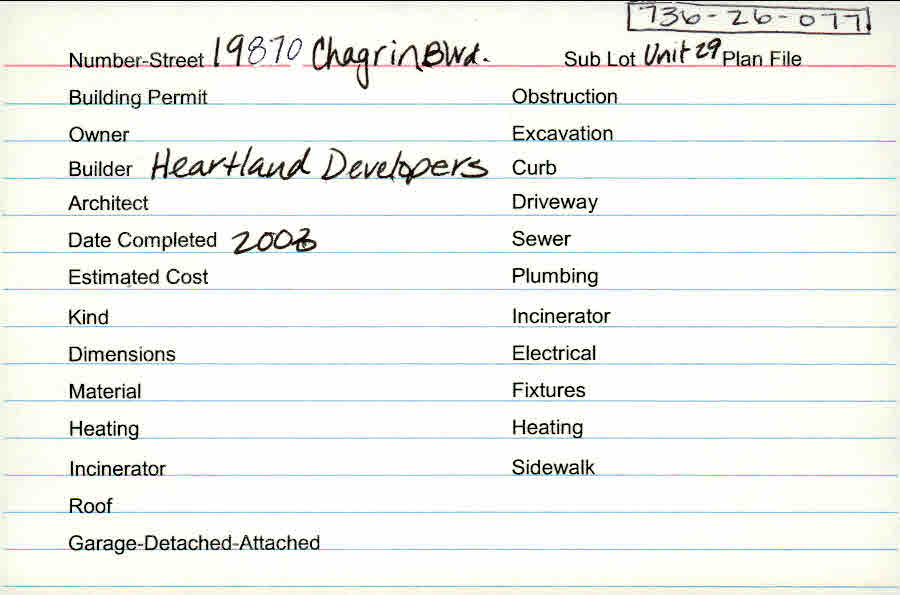 736-26-077
Number-Street 19870 Chagrin Blvd. Sub Lot Unit 29 Plan File
Building Permit Obstruction
Owner Excavation
Builder Heartland Developers Curb
Architect Driveway
Date Completed 2003 Sewer
Estimated Cost Plumbing
Kind Incinerator
Dimensions Electrical
Material Fixtures
Heating Heating
Incinerator Sidewalk
Roof
Garage-Detached-Attached